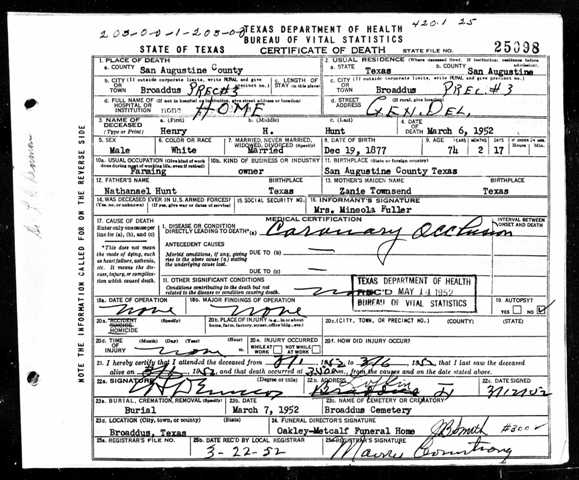 203-00-1-203-00
4201 25
TEXAS DEPARTMENT OF HEALTH
BUREAU OF VITAL STATISTICS
STATE OF TEXAS CERTIFICATE OF DEATH STATE FILE NO. 25098
1. PLACE OF DEATH
a. COUNTY San Augustine County
2. USUAL RESIDENCE (Where deceased lived. If institution: residence before admission)
a. STATE Texas b. COUNTY San Augustine
b. CITY (If outside corporate limits, write RURAL and give precinct no.) OR TOWN Broaddus PREC#3
c. LENGTH OF STAY (in this place)
c. CITY (If outside corporate limits, write RURAL and give precinct no.) OR TOWN Broaddus PREC. #3
d. FULL NAME OF HOSPITAL OR INSTITUTION (If not in hospital or institution, give street address or location) none HOME
d. STREET ADDRESS (If rural, give location) GEN. DEL.
3. NAME OF DECEASED (Type or Print) a. (First) Henry b. (Middle) H. c. (Last) Hunt
4. DATE OF DEATH March 6, 1952
5. SEX Male
6. COLOR OR RACE White
7. MARRIED, NEVER MARRIED, WIDOWED, DIVORCED (Specify) Married
8. DATE OF BIRTH Dec 19, 1877
9. AGE YEARS 74 MONTHS 2 DAYS 17
10a. USUAL OCCUPATION (Give kind of work done during most of working life, even if retired) Farming
10b. KIND OF BUSINESS OR INDUSTRY owner
11. BIRTHPLACE (State or foreign country) San Augustine County Texas
12. FATHER'S NAME Nathansel Hunt Texas
13. MOTHER'S MAIDEN NAME Zanie Townsend Texas
14. WAS DECEASED EVER IN U.S. ARMED FORCES? (If yes, give war or dates of service)
15. SOCIAL SECURITY NO.
16. INFORMANT'S SIGNATURE Mrs. Mineola Fuller
17. CAUSE OF DEATH
Enter only one cause per line for (a), (b), and (c)
MEDICAL CERTIFICATION
INTERVAL BETWEEN ONSET AND DEATH
I. DISEASE OR CONDITION DIRECTLY LEADING TO DEATH* (a) Coronary Occlusion
*This does not mean the mode of dying, such as heart failure, asthenia, etc. It means the disease, injury, or complication which caused death.
ANTECEDENT CAUSES
Morbid conditions, if any, giving rise to the above cause (a) stating the underlying cause last.
DUE TO (b)
DUE TO (c)
II. OTHER SIGNIFICANT CONDITIONS
Conditions contributing to the death but not related to the disease or condition causing death.
TEXAS DEPARTMENT OF HEALTH
REC'D MAY 14 1952
BUREAU OF VITAL STATISTICS
18a. DATE OF OPERATION none
18b. MAJOR FINDINGS OF OPERATION none
19. AUTOPSY? YES NO
20a. ACCIDENT SUICIDE HOMICIDE (Specify)
20b. PLACE OF INJURY (e.g., in or about home, farm, factory, street, office bldg., etc.)
20c. (CITY, TOWN, OR PRECINCT NO.) (COUNTY) (STATE)
20d. TIME OF INJURY (Month) (Day) (Year) (Hour) none
20e. INJURY OCCURRED WHILE AT WORK NOT WHILE AT WORK
20f. HOW DID INJURY OCCUR?
21. I hereby certify that I attended the deceased from 1952 to 3/6, 1952, that I last saw the deceased alive on 1952, and that death occurred at m., from the causes and on the date stated above.
22a. SIGNATURE (Degree or title)
22b. ADDRESS Lufkin
22c. DATE SIGNED
23a. BURIAL, CREMATION, REMOVAL (Specify) Burial
23b. DATE March 7, 1952
23c. NAME OF CEMETERY OR CREMATORY Broaddus Cemetery
23d. LOCATION (City, town, or county) (State) Broaddus, Texas
24. FUNERAL DIRECTOR'S SIGNATURE Oakley-Metcalf Funeral Home JB Smith
25a. REGISTRAR'S FILE NO.
25b. DATE REC'D BY LOCAL REGISTRAR 3-22-52
25c. REGISTRAR'S SIGNATURE
NOTE THE INFORMATION CALLED FOR ON THE REVERSE SIDE